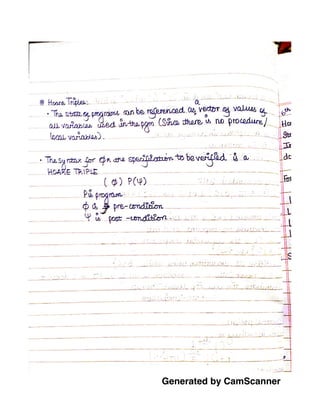 * Hoare Triples:
• The state of programs can be referenced as a vector of values of
all variables used in the pgm (Since there is no procedure/
local variables).
• The syntax for the specification to be verified is a
HOARE TRIPLE
( φ ) P ( ψ )
P is program
φ is pre-condition
ψ is post-condition.
Generated by CamScanner